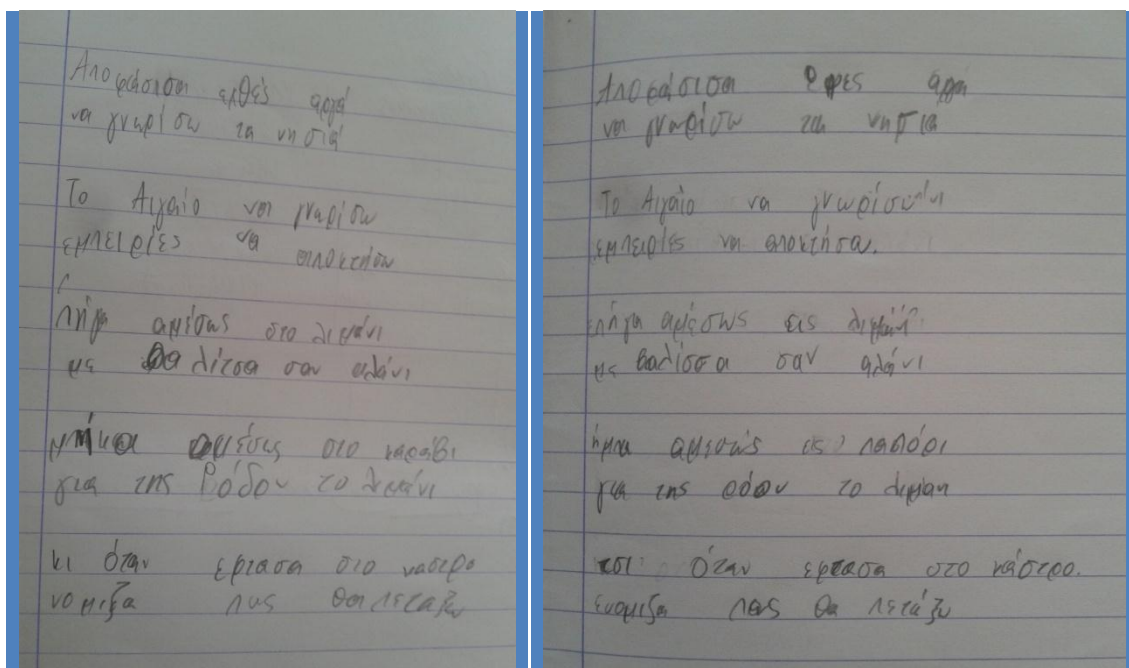 Αποφάσισα εχθές αργά
να γνωρίσω τα νησιά
Το Αιγαίο να γνωρίσω
εμπειρίες να αποκτήσω
πήγα αμέσως στο λιμάνι
με βαλίτσα σαν αλάνι
μπήκα αμέσως στο καράβι
για της Ρόδου το λιμάνι
κι όταν εφτασα στο καστρο
νομιζα πως θα πεταξω
Αποφάσισα αργά
να γνωρίσω τα νησια
Το Αιγαίο να γνωρίσω
εμπειρίες να αποκτήσα.
πήγα αμέσως εις
με βαλίσσα σαν αλάνι
αμεσώς εις
για της το
όταν εφτασα στο κάστρο.
ενομιζα πως θα πετάξω